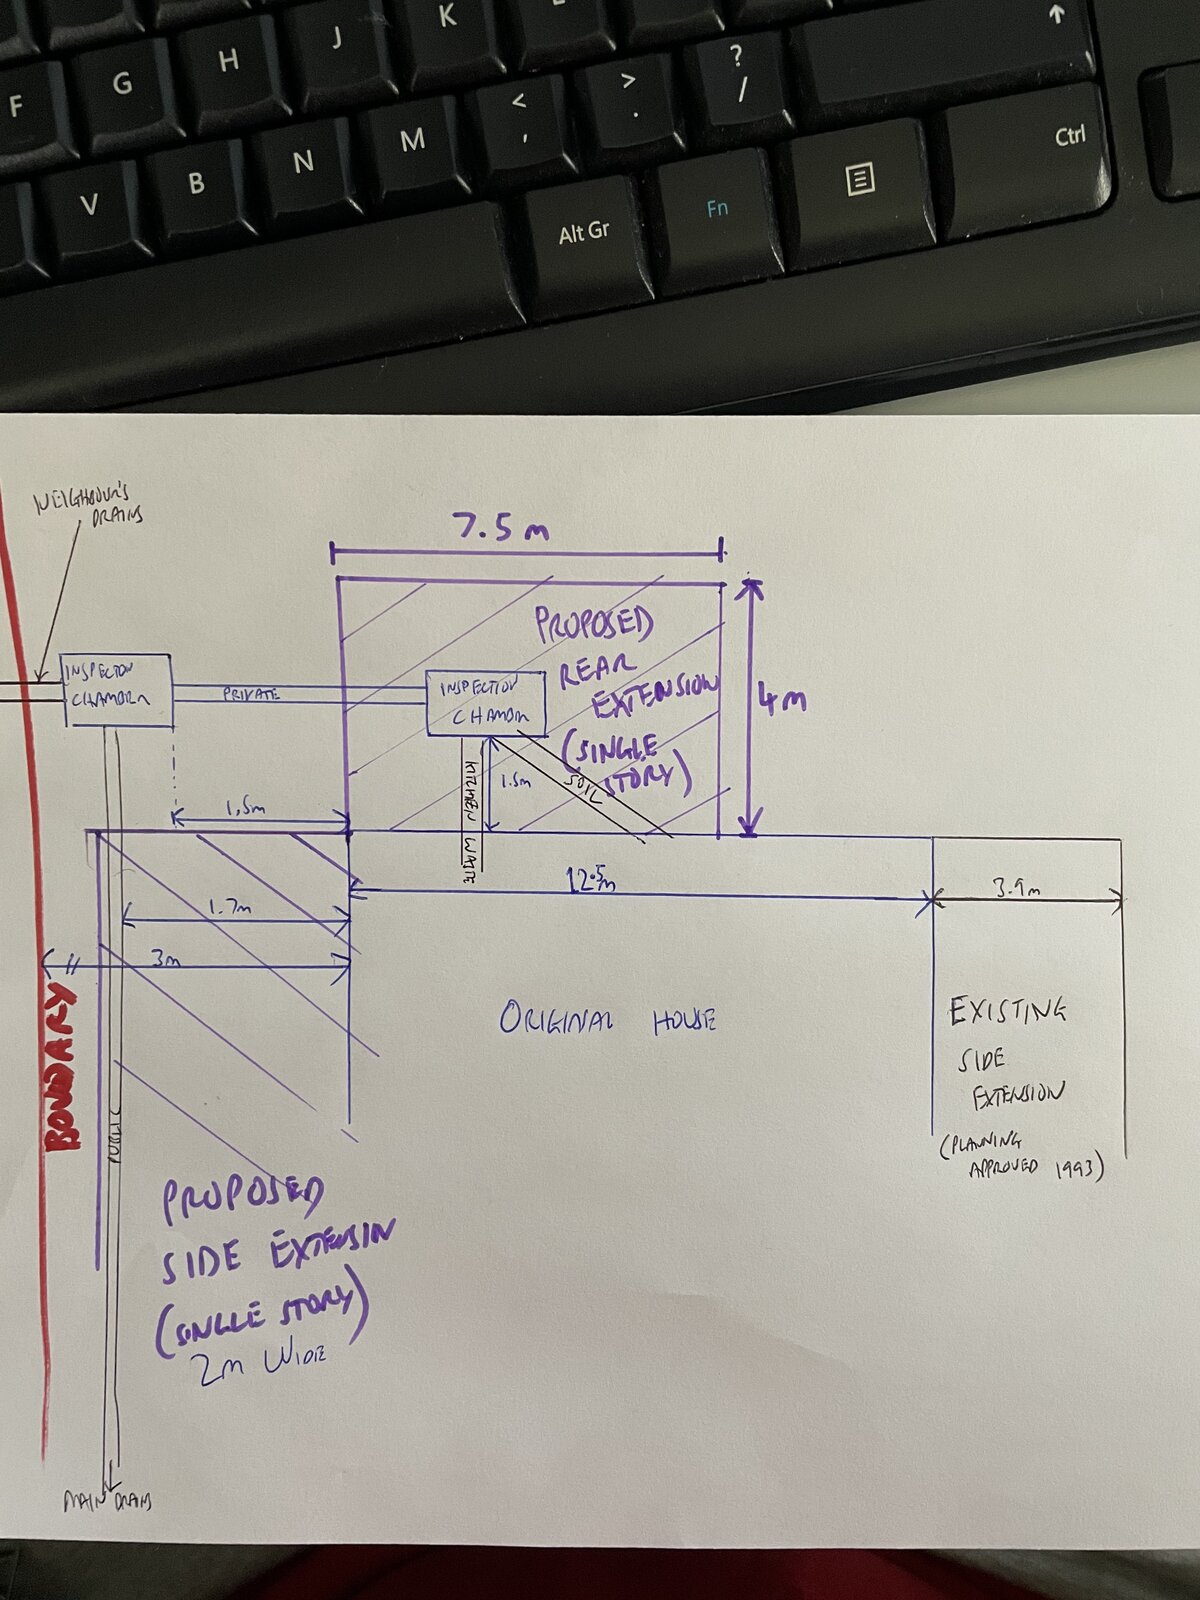 K
J
H
G
F
?
/
>
.
<
,
M
N
B
V
Ctrl
Fn
Alt Gr
NEIGHBOUR'S
DRAINS
7.5 m
PROPOSED
REAR
EXTENSION
(SINGLE
STORY)
4m
INSPECTION
CHAMBER
PRIVATE
INSPECTION
CHAMBR
KITCHEN WASTE
1.5m
SOIL
1.5m
12.5m
3.9m
1.7m
3m
BOUNDARY
ORIGINAL HOUSE
EXISTING
SIDE
EXTENSION
(PLANNING
APPROVED 1993)
PUBLIC
PROPOSED
SIDE EXTENSIN
(SINGLE STORY)
2m WIDE
MAIN DRAINS